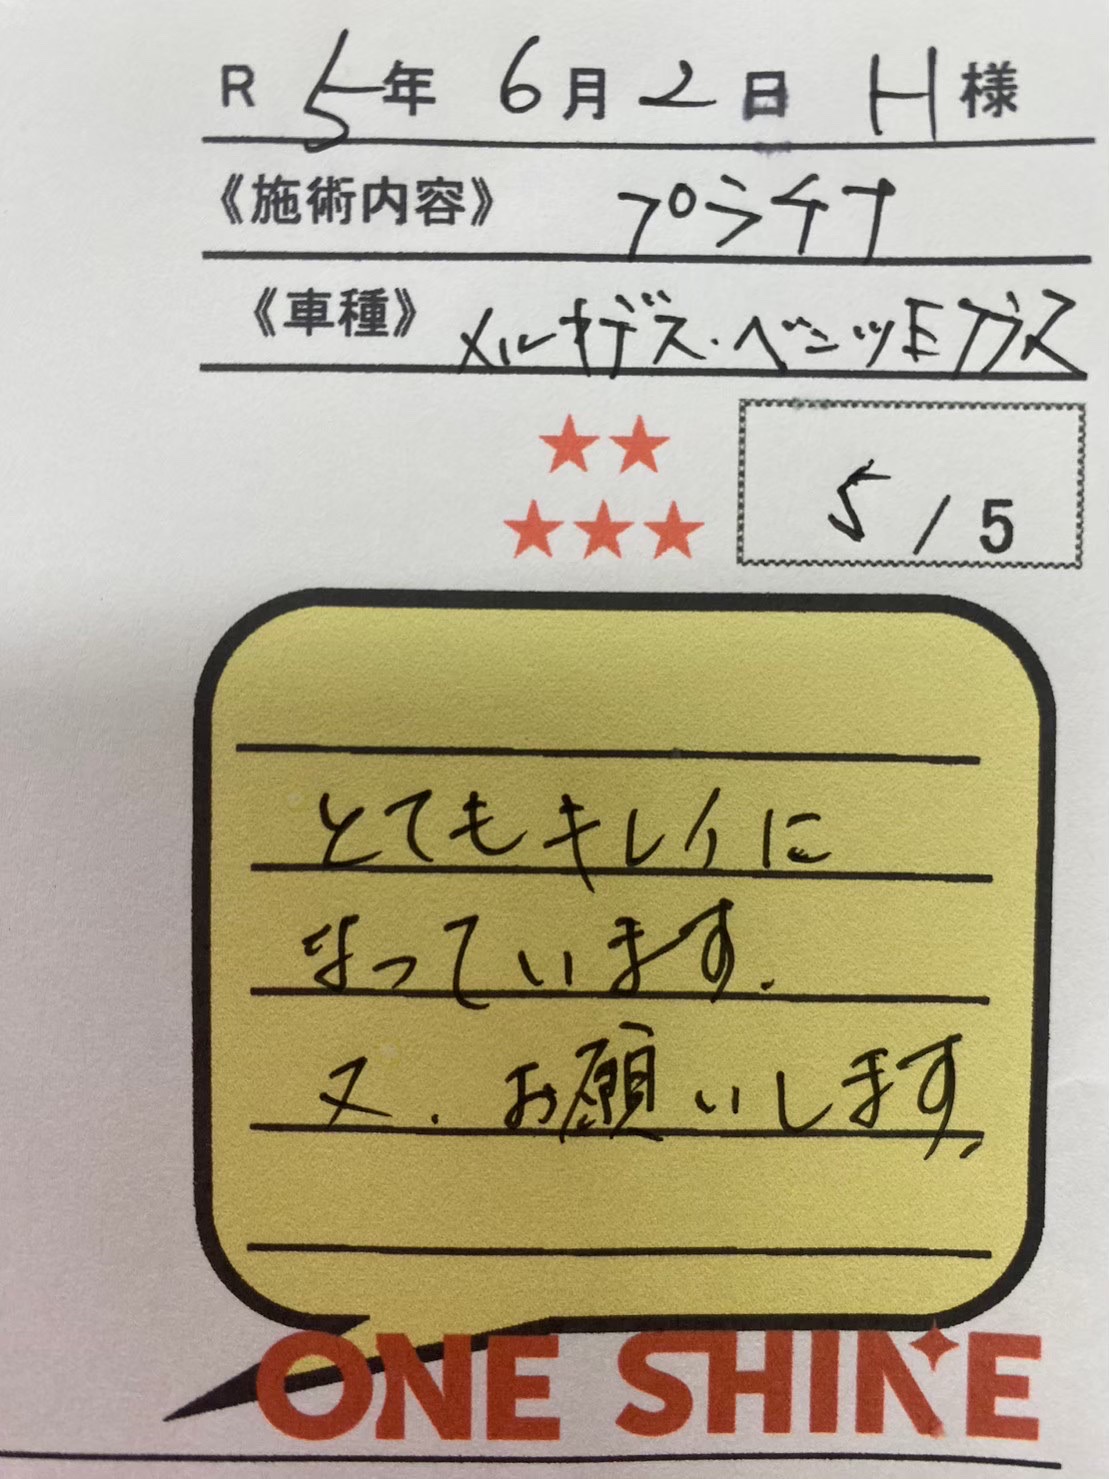 R 5年 6月 2日 H様
《施術内容》 プラチナ
《車種》 メルセデス・ベンツEクラス
★★
★★★
5/5
とてもキレイに
なっています.
又. お願いします.
ONE SHINE